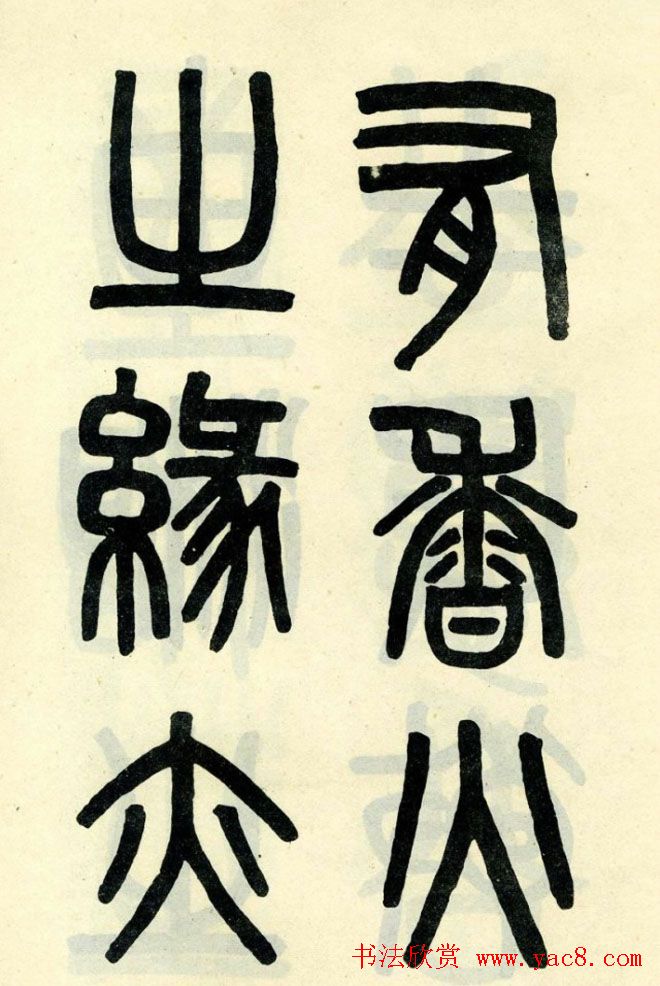 有香火
之緣亦
书法欣赏 www.yac8.com